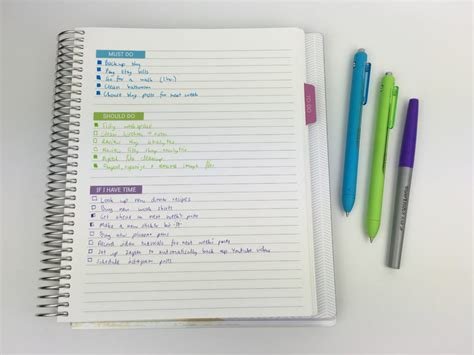 MUST DO
Back up blog
Pay Etsy bills
Go for a walk (1 hr)
Clean bathroom
Choose blog posts for next week
SHOULD DO
Tidy workspace
Clean kitchen
Review blog analytics
Review Etsy shop analytics
Digital file cleanup
organize + files
IF I HAVE TIME
Look up new dinner recipes
Buy new work shirts
Get ahead on next week's posts
Make a new sticker kit
Buy new planner pens
Record video tutorials for next week's posts
Set up Zapier to automatically back up Youtube videos
Schedule instagram posts
TO DO